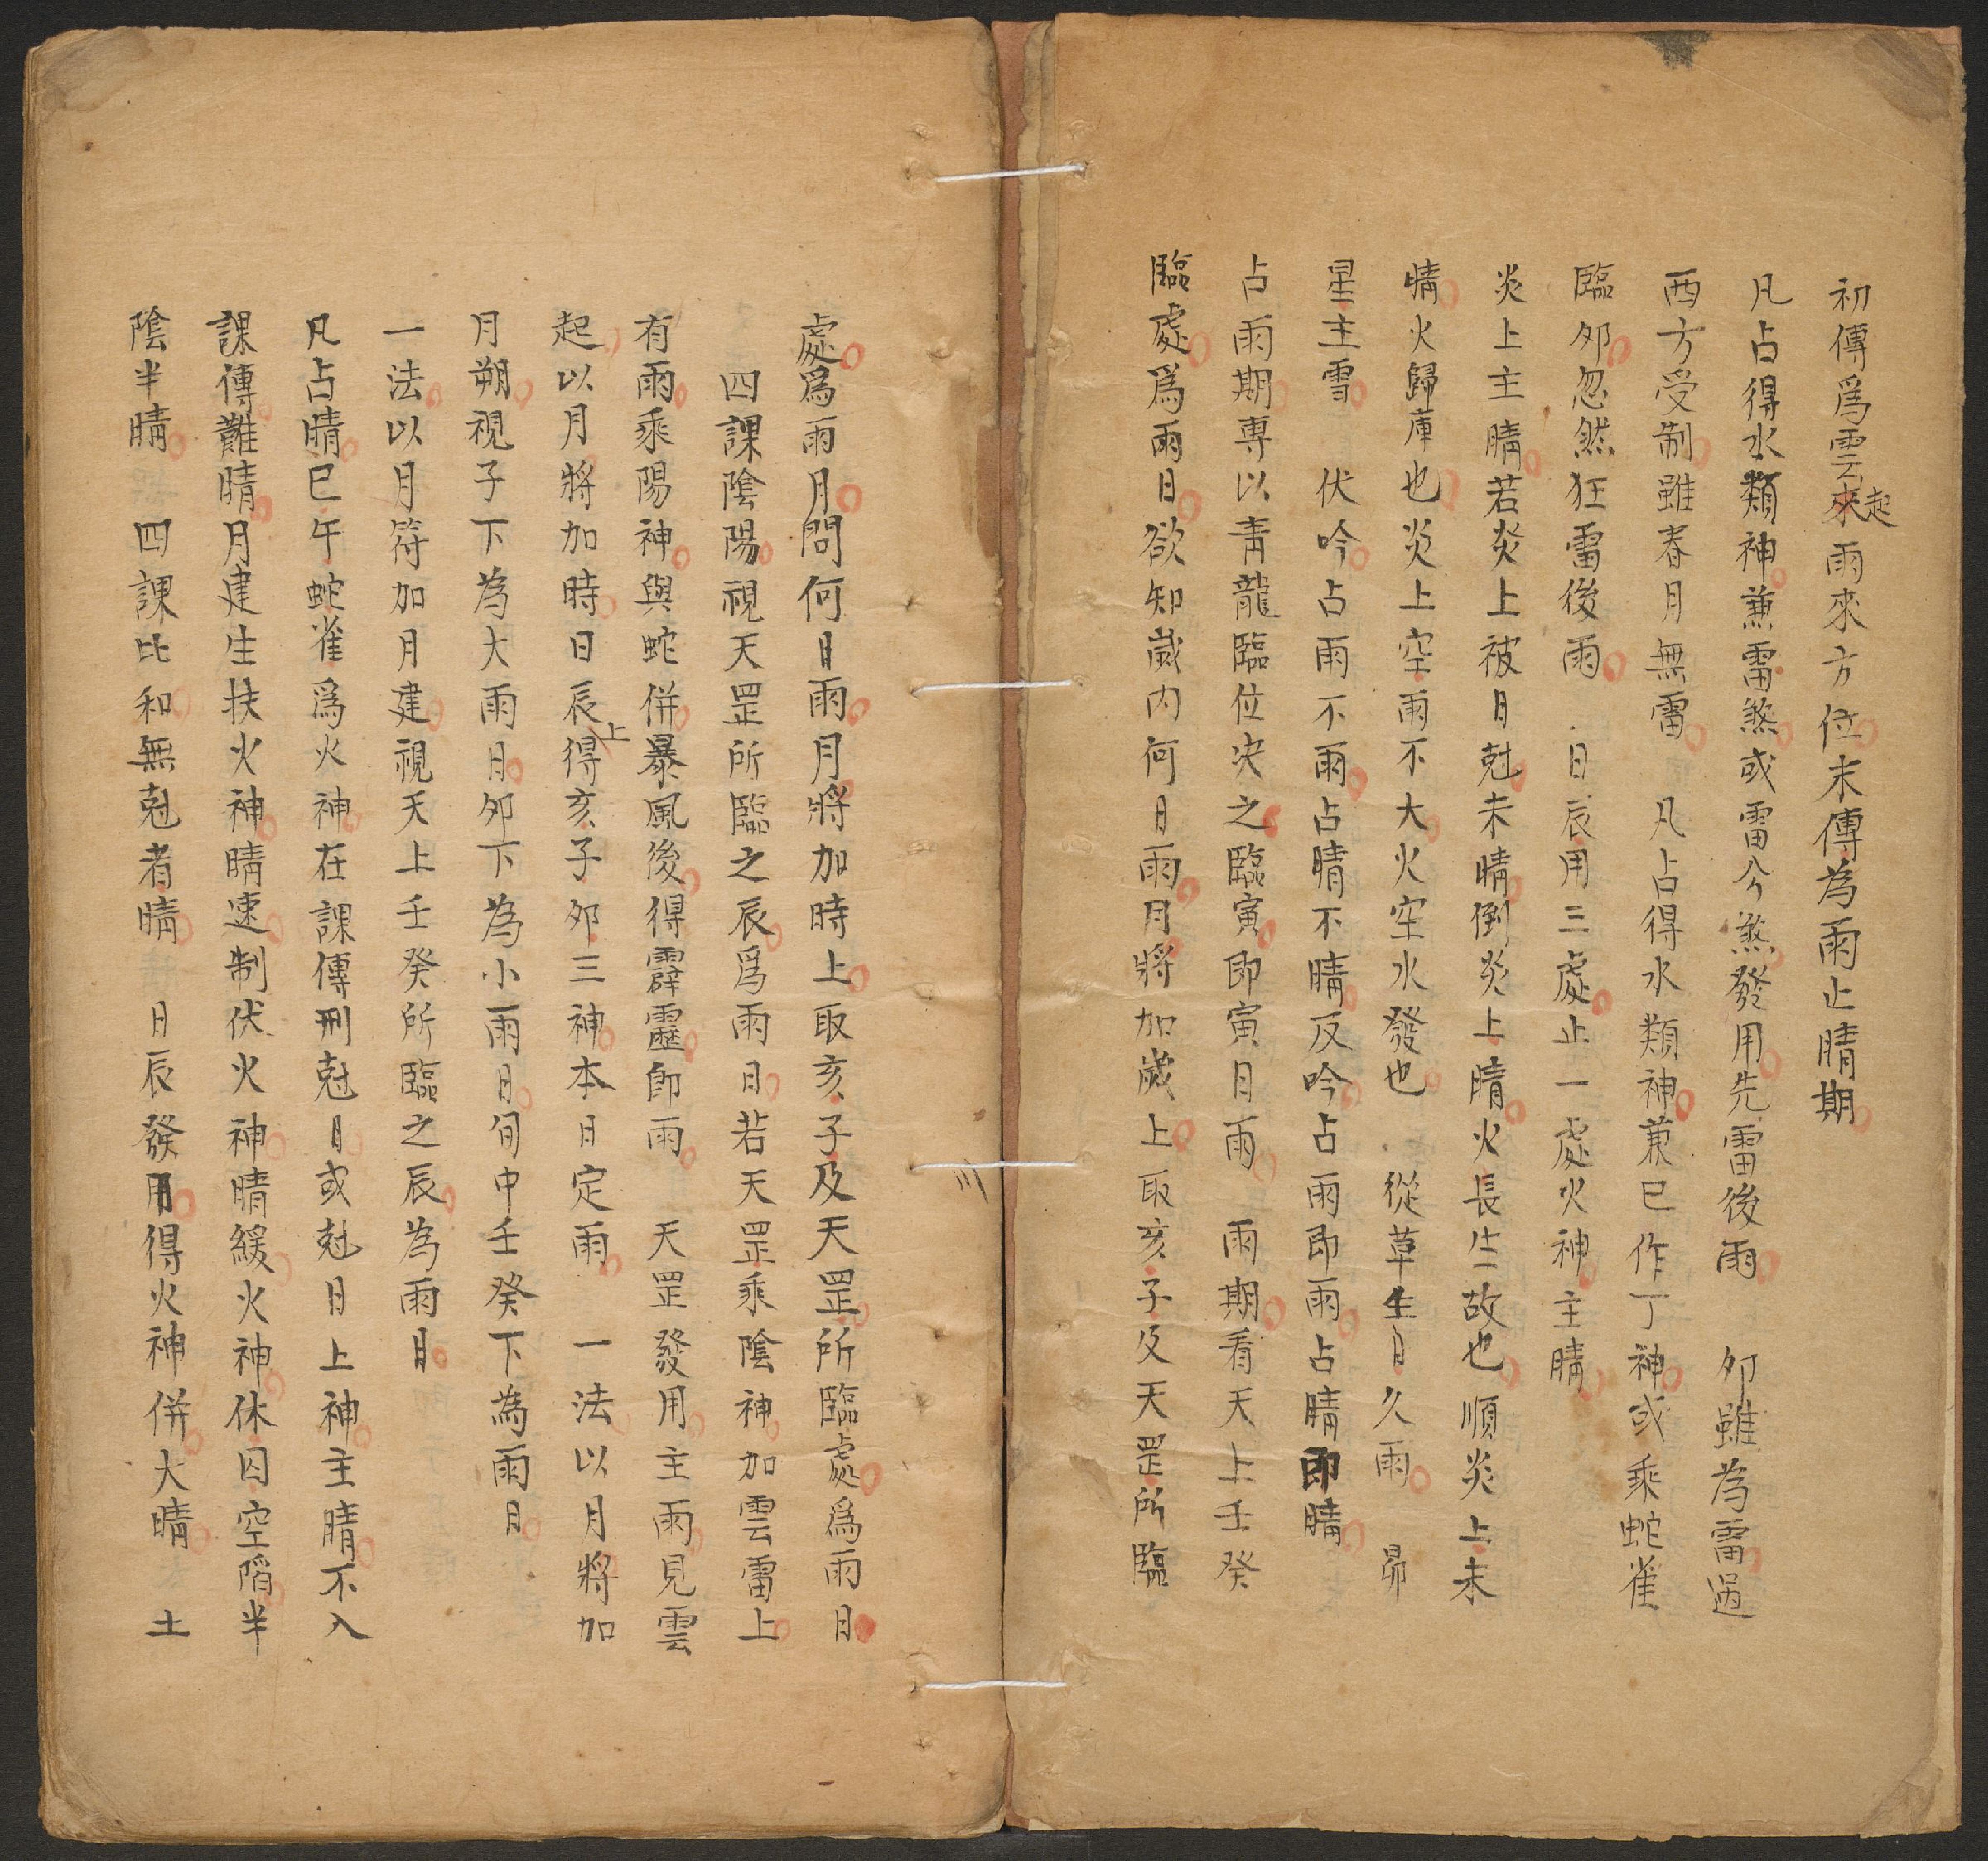 初傳爲雲來起雨來方位末傳為雨止晴期
凡占得水類神兼雷煞或雷公煞發用先雷後雨 夘雖為雷過
西方受制雖春月無雷 凡占得水類神兼巳作丁神或乘蛇雀
臨夘忽然狂雷後雨 日辰用三處止一處火神主晴
炎上主晴若炎上被日尅未晴倒炎上晴火長生故也順炎上未
晴火歸庫也炎上空雨不大火空水發也 從草生日久雨 昴
星主雪 伏吟占雨不雨占晴不晴反吟占雨即雨占晴即晴
占雨期專以青龍臨位决之臨寅即寅日雨 雨期看天上壬癸
臨處爲雨日欲知歲内何月雨月將加歲上取亥子及天罡所臨
處爲雨月問何日雨月將加時上取亥子及天罡所臨處爲雨日
四課陰陽視天罡所臨之辰爲雨日若天罡乘陰神加雲雷上
有雨乘陽神與蛇併暴風後得霹靂即雨 天罡發用主雨見雲
起以月將加時日辰上得亥子夘三神本日定雨 一法以月將加
月朔視子下為大雨日夘下為小雨日旬中壬癸下為雨日
一法以月符加月建視天上壬癸所臨之辰為雨日
凡占晴巳午蛇雀爲火神在課傳刑尅日或尅日上神主晴不入
課傳難晴月建生扶火神晴速制伏火神晴緩火神休囚空陷半
陰半晴 四課比和無尅者晴 日辰發用得火神併大晴 土